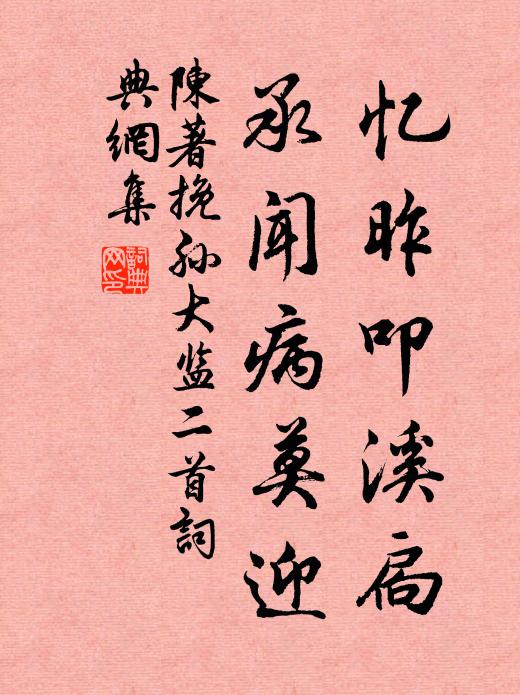 忆昨叩溪扃
承闻病莫迎
陳著挽孙大监二首詞
典網集
詞典
网印